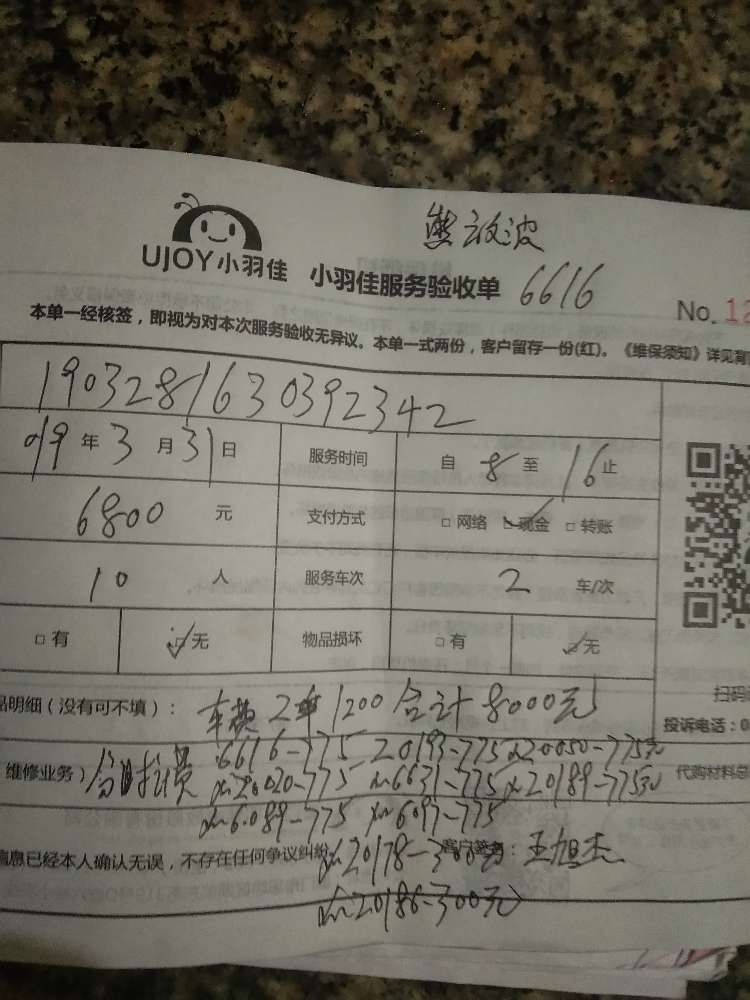 熊启波
UJOY小羽佳 小羽佳服务验收单 6616 No. 12
本单一经核签，即视为对本次服务验收无异议。本单一式两份，客户留存一份(红)。《维保须知》详见背
1903281630392342
019 年 3 月 31 日 服务时间 自 8 至 16 止
6800 元 支付方式 □ 网络 ☑ 现金 □ 转账
10 人 服务车次 2 车/次
□ 有 ☑ 无 物品损坏 □ 有 ☑ 无
扫码
品明细（没有可不填）： 车费 2车 1200 合计 8000元
投诉电话：0
6616-775 20193-775 20050-775元
维修业务） 20020-775 6631-775 20189-775元 代购材料总
6089-775 6097-775
信息已经本人确认无误，不存在任何争议纠纷 20178-300元 客户签名： 王旭杰
20186-300元